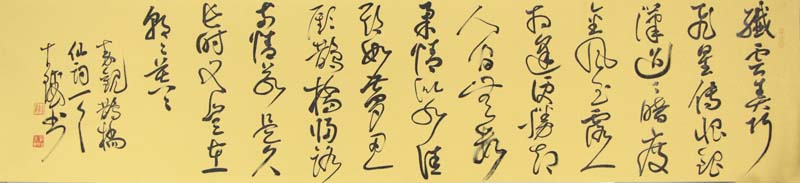 纖雲弄巧
飛星傳恨銀
漢迢々暗度
金風玉露一
相逢便勝却
人間無數
柔情似水佳
期如夢忍
顧鵲橋歸路
兩情若是久
長時又豈在
朝々暮々
秦觀鵲橋
仙詞一首
書